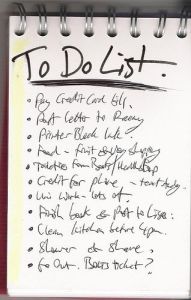 To Do List.
• Pay Credit Card bill.
• Post letter to
• Printer Black Ink.
• Food - fruit & veg shopping
• Toiletries from Boots/
• Credit for phone - text
• Uni work - lots of.
• Finish book & post to Lisa.
• Clean kitchen before 6pm.
• Shower & Shave.
• Go Out. ticket?